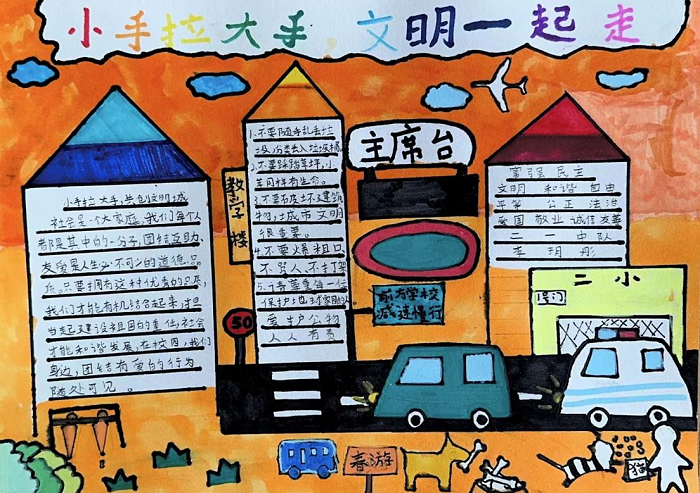 小手拉大手,文明一起走
小手拉大手,共创文明城
社会是一个大家庭,我们每个人
都是其中的一分子,团结互助、
友爱是人生必不可少的道德品
质。只要拥有这种优秀的品质,
我们才能有机结合起来,才担
当起建设祖国的重任,社会
才能和谐发展,在校园,我们
身边,团结有爱的行为
随处可见。
教学楼
1.不要随手乱丢垃
圾,分类丢入垃圾桶
2.不要踩踏草坪,小
草同样有生命。
3.不要破坏建筑
物,城市文明
很重要。
4.不要爆粗口
不骂人,不打架
5.尊重每一位
爱护公物
人人有责
主席台
前方学校
减速慢行
50
富强 民主
文明 和谐 自由
平等 公正 法治
爱国 敬业 诚信 友善
二一中队
李玥彤
二小
春游
猫